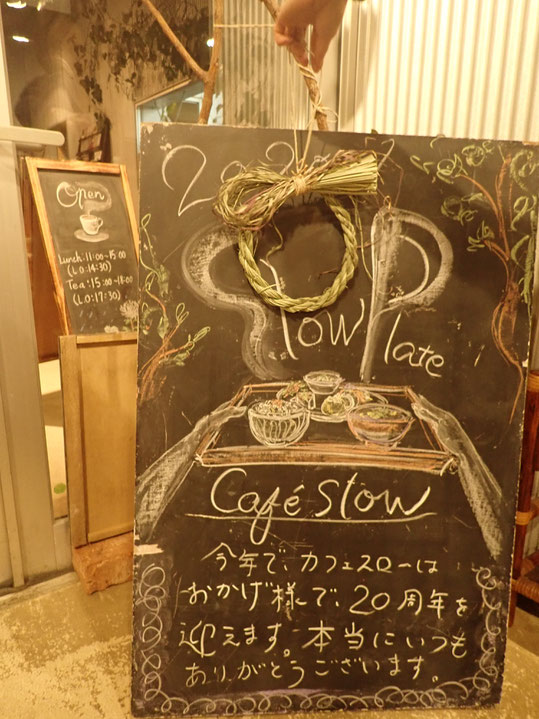 Open
Lunch:11:00~15:00
(L.O:14:30)
Tea:15:00~18:00
(L.O:17:30)
Slow Plate
Café Slow
今年で、カフェスローは
おかげ様で、20周年を
迎えます。本当にいつも
ありがとうございます。